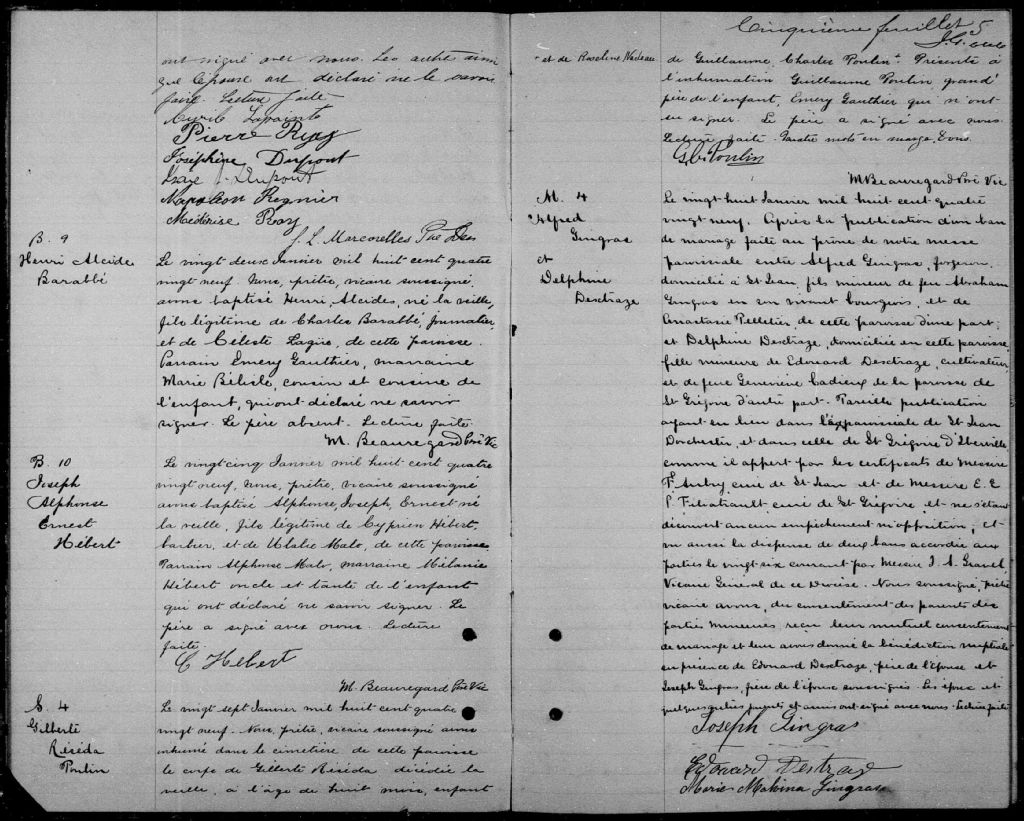 ont signé avec nous. Les autres ainsi
que l'épouse ont déclaré ne le savoir
faire. Lecture faite.
Cyrile Lapointe
Pierre Roy
Joséphine Dupont
Isaye Dupont
Napoléon Regnier
Mederise Roy
J. L. Marcorelles Ptre
B. 9
Henri Alcide
Barabbé
Le vingt deux Janvier mil huit cent quatre
vingt neuf. Nous, prêtre, vicaire soussigné,
avons baptisé Henri, Alcides, né la veille,
fils légitime de Charles Barabbé, Journalier,
et de Celeste Lague, de cette paroisse.
Parrain Emery Gauthier, marraine
Marie Bélisle, cousin et cousine de
l'enfant, qui ont déclaré ne savoir
signer. Le père absent. Lecture faite.
M. Beauregard Ptre Vic
B. 10
Joseph
Alphonse
Ernest
Hébert
Le vingt cinq Janvier mil huit cent quatre
vingt neuf, Nous, prêtre, vicaire soussigné
avons baptisé Alphonse, Joseph, Ernest né
la veille, fils légitime de Cyprien Hébert,
barbier, et de Ulalie Malo, de cette paroisse
Parrain Alphonse Malo, marraine Mélanie
Hébert oncle et tante de l'enfant
qui ont déclaré ne savoir signer. Le
père a signé avec nous. Lecture
faite.
C Hebert
M. Beauregard Ptre Vic
S. 4
Gilberte
Réséda
Poulin
Le vingt sept Janvier mil huit cent quatre
vingt neuf. Nous, prêtre, vicaire soussigné avons
inhumé dans le cimetière de cette paroisse
le corps de Gilberte Réséda décédée la
veille, à l'âge de huit mois, enfant
Cinquième feuillet 5
+ et de Roselina Nadeau
de Guillaume, Charles Poulin + Présents à
l'inhumation Guillaume Poulin, grand'
père de l'enfant, Emery Gauthier qui n'ont
su signer. Le père a signé avec nous.
Lecture faite. Quatre mots en marge, bons.
G. C. Poulin
M Beauregard Ptre Vic
M. 4
Alfred
Gingras
et
Delphine
Destraze
Le vingt huit Janvier mil huit cent quatre
vingt neuf. Après la publication d'un ban
de mariage faite au prône de notre messe
paroissiale entre Alfred Gingras, forgeron,
domicilié à St Jean, fils mineur de feu Abraham
Gingras en son vivant bourgeois, et de
Anastasie Pelletier, de cette paroisse d'une part;
et Delphine Destraze, domiciliée en cette paroisse,
fille mineure de Edouard Destraze, cultivateur,
et de feue Geneviève Cadieux de la paroisse de
St Grégoire d'autre part. Pareille publication
ayant eu lieu dans l'église paroissiale de St Jean
Dorchester, et dans celle de St Grégoire d'Iberville
comme il appert par les certificats de Messire
F. Aubry curé de St Jean et de Messire E. E
P. Filiatrault curé de St Grégoire, et ne s'étant
découvert aucun empêchement ni opposition; et
vu aussi la dispense de deux bans accordée aux
parties le vingt-six courant par Messire J. A. Gravel,
Vicaire Général de ce Diocèse. Nous soussigné, prêtre
vicaire avons, du consentement des parents des
parties mineures, reçu leur mutuel consentement
de mariage et leur avons donné la bénédiction nuptiale
en présence de Edouard Destraze, père de l'épouse et
Joseph Gingras, frère de l'époux soussignés. Les époux et
quelques autres parents et amis ont signé avec nous. Lecture faite
Joseph Gingras
Edouard Destraze
Marie Malvina Gingras